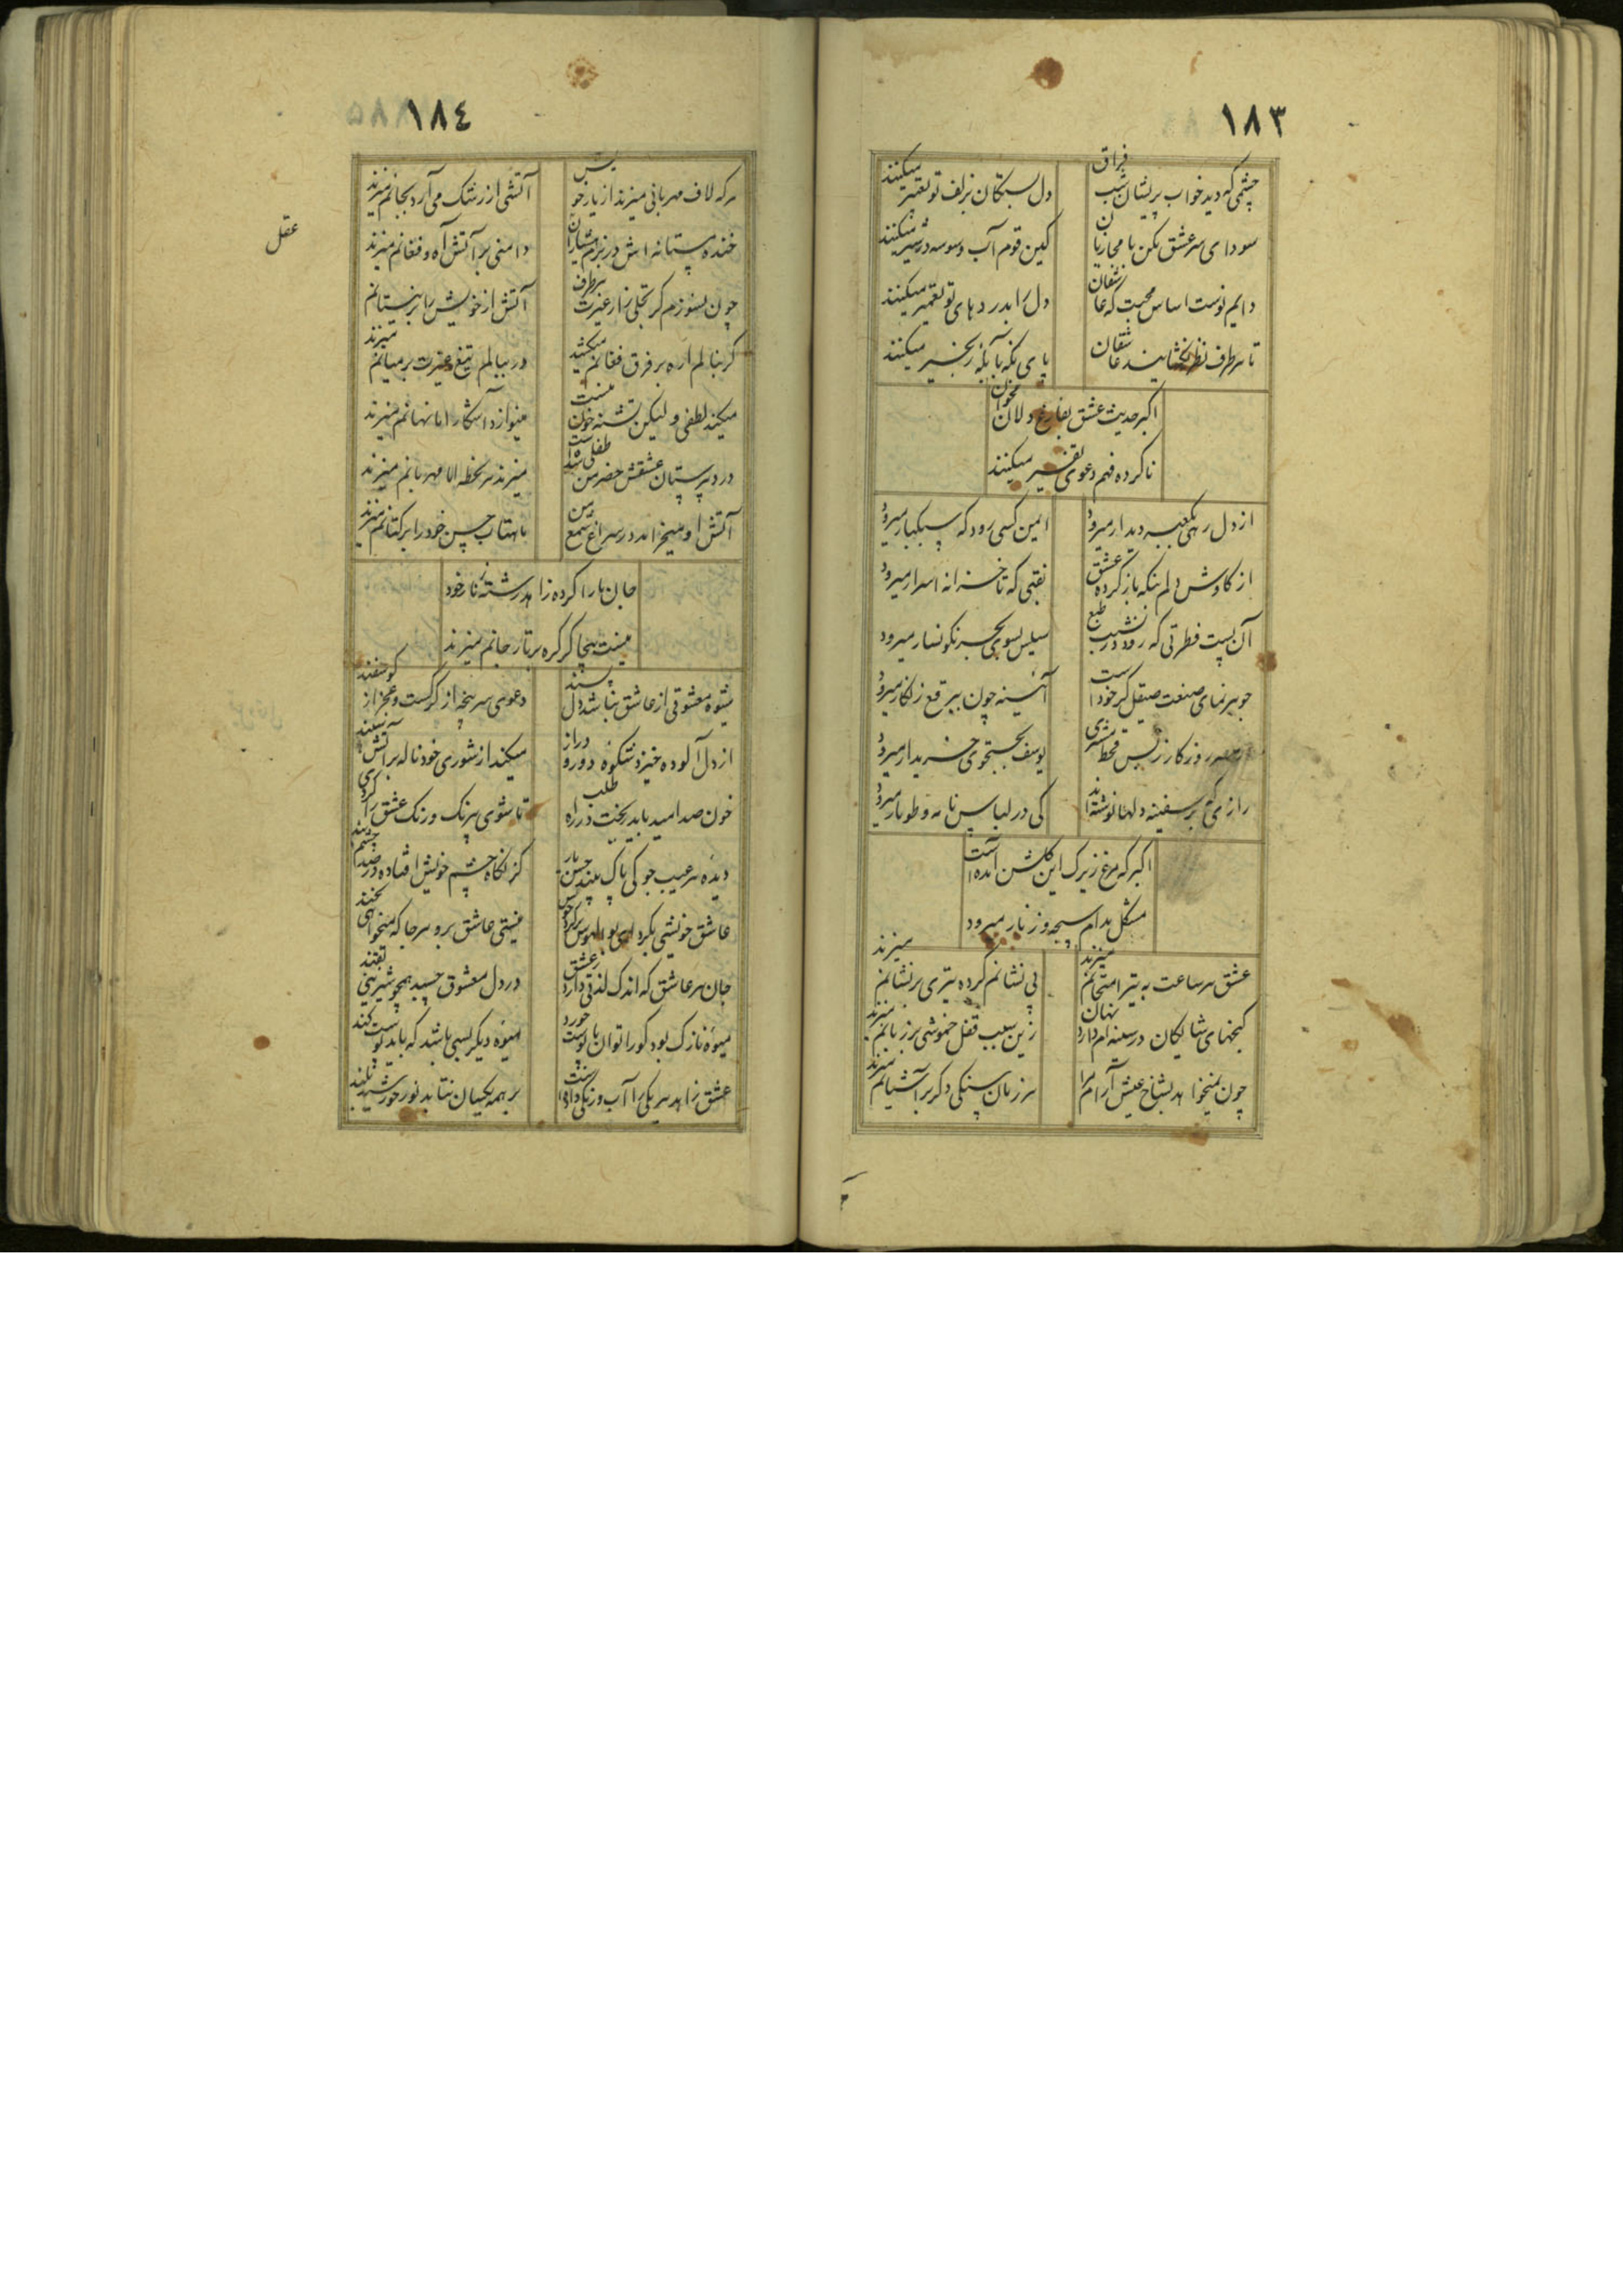 ١٨٣
چشمی که دید خواب پریشان شب فراق
دل بستکان بزلف تو تعبیر میکنند
سودای سر عشق مکن با مجازیان
کین قوم آب وسوسه در شیر میکنند
دایم نوست اساس محبت که عاشقان
دل را بدردهای تو تعمیر میکنند
تا هر طرف نظر نکشایند عاشقان
پای نکه بآبله زنجیر میکنند
اکبر حدیث عشق بفارغ دلان مخوان
ناکرده فهم دعوی تفسیر میکنند
از دل رهی بکعبه دیدار میرود
ایمن کسی رود که سبکبار میرود
از کاوش دلم بنکه باز کرده عشق
نقبی که تا خزانه اسرار میرود
آن پست فطرتی که رود در نشیب طبع
سیلیس بسوی بحر نکونسار میرود
جوهر نمای صنعت صیقل کر خود است
آئینه چون ببرقع زنکار میرود
روزکار زبس قحط مشتری
یوسف بجستجوی خریدار میرود
رازی که بر سفینه دلها نوشته اند
کی در لباس نامه و طومار میرود
اکبر که مرغ زیرک این کلشن آمده است
مشکل بدام سبحه و زنار میرود
عشق هر ساعت به تیر امتحانم میزند
بی نشانم کرده تیری بر نشانم میزند
کنجهای شایکان در سینه ام دارد نهان
زین سبب قفل خموشی بر زبانم میزند
چون نمیخواهد بشاخ عیش آرام مرا
هر زمان سنکی دکر بر آشیانم میزند
١٨٤
هر که لاف مهربانی میزند از یار خویش
آتشی از رشک می آرد بجانم میزند
خنده مستانه اش در بزم هشیاران
دامنی بر آتش آه و فغانم میزند
چون نسوزم کر تجلی زار غیرت برطرف
آتش از خویش را بر نیستانم
کر بنالم اره بر فرق فغانم میکشد
در ببالم تیغ غیرت بر میانم میزند
میکند لطفی و لیکن تشنه خون منست
مینوازد آشکارا ما نهانم میزند
در دبیرستان عشقش خضر من طفلی شده است
میزند هر لحظه اما مهربانم میزند
آتش او میخرامد در سراغ شمع من
ماهتاب حسن خود را بر کتانم میزند
جان ما را کرده زاهد رشته زنار خود
نیست بیجا کر کره بر تار جانم میزند
شیوه معشوقی از عاشق نباشد دل پسند
دعوی سر پنجه از کرکست و عجز از کوسفند
از دل آلوده خیزد شکوه دور و دراز
میکند از شوری خود ناله بر آتش سپند
خون صد امید باید ریخت در راه طلب
تا شوی همرنک و رنک عشق را کردی
دیده هر عیب جو کی پاک بیند حسن یار
کز نکاه چشم خویش افتاده در صد چشم بند
عاشق خویشی مکرد ای بوالهوس بر کرد خویش
نیستی عاشق برو هر جا که میخواهی بخند
جان هر عاشق که اندک لذتی دارد ز عشق
در دل معشوق چسبد همچو شیرینی بقند
میوه نازک بود کو را توان با پوست خورد
میوه دیکر بسی باشد که باید پوست کند
عشق زاهد هر یکی را آب و رنکی داده است
بر همه یکسان نتابد نور خورشید بلند
عقل